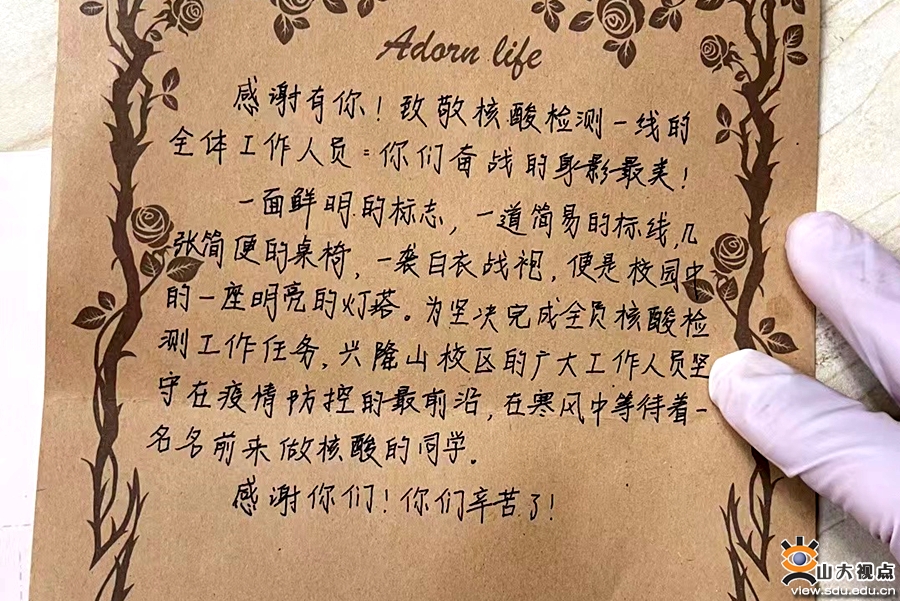 Adorn life
感谢有你！致敬核酸检测一线的
全体工作人员：你们奋战的身影最美！
一面鲜明的标志，一道简易的标线，几
张简便的桌椅，一袭白衣战袍，便是校园中
的一座明亮的灯塔。为坚决完成全员核酸检
测工作任务，兴隆山校区的广大工作人员坚
守在疫情防控的最前沿，在寒风中等待着一
名名前来做核酸的同学。
感谢你们！你们辛苦了！
山大视点
view.sdu.edu.cn